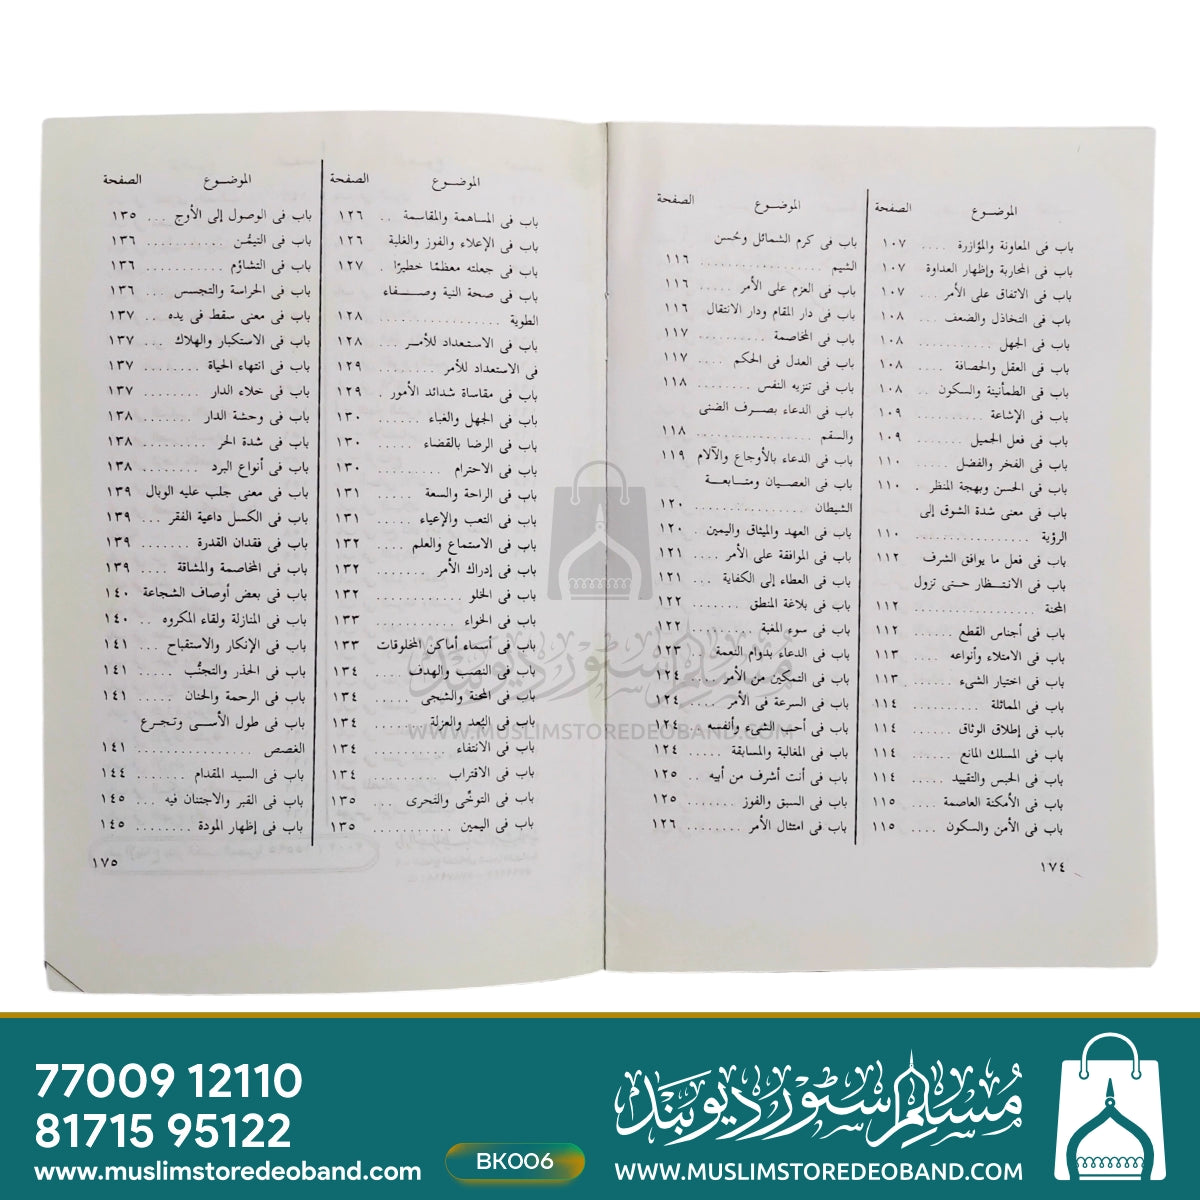 الموضوع الصفحة
باب فى المعاونة والمؤازرة .... ١٠٧
باب فى المحاربة وإظهار العداوة ١٠٧
باب فى الاتفاق على الأمر ... ١٠٧
باب فى التخاذل والضعف ... ١٠٨
باب فى الجهل ........... ١٠٨
باب فى العقل والحصافة .... ١٠٨
باب فى الطمأنينة والسكون .. ١٠٨
باب فى الإشاعة .......... ١٠٩
باب فى فعل الجميل ....... ١٠٩
باب فى الفخر والفضل ..... ١١٠
باب فى الحسن وبهجة المنظر . ١١٠
باب فى معنى شدة الشوق إلى
الرؤية ................ ١١٠
باب فى فعل ما يوافق الشرف ١١٢
باب فى الانتظار حتى نزول
المحنة ................ ١١٢
باب فى أجناس القطع ...... ١١٢
باب فى الامتلاء وأنواعه .... ١١٣
باب فى اختيار الشىء ...... ١١٣
باب فى المماثلة .......... ١١٤
باب فى إطلاق الوثاق ...... ١١٤
باب فى المسلك المانع ...... ١١٤
باب فى الحبس والتقييد .... ١١٤
باب فى الأمكنة العاصمة .... ١١٥
باب فى الأمن والسكون .... ١١٥
الموضوع الصفحة
باب فى كرم الشمائل وحُسن
الشيم ................ ١١٦
باب فى العزم على الأمر ..... ١١٦
باب فى دار المقام ودار الانتقال ١١٦
باب فى المخاصمة ......... ١١٧
باب فى العدل فى الحكم .... ١١٧
باب فى تنزيه النفس ....... ١١٨
باب فى الدعاء بصرف الضنى
والسقم ............... ١١٨
باب فى الدعاء بالأوجاع والآلام ١١٩
باب فى العصيان ومتابعة
الشيطان .............. ١٢٠
باب فى العهد والميثاق واليمين . ١٢٠
باب فى الموافقة على الأمر ... ١٢١
باب فى العطاء إلى الكفاية ... ١٢١
باب فى بلاغة المنطق ....... ١٢٢
باب فى سوء المغبة ........ ١٢٢
باب فى الدعاء بدوام النعمة .. ١٢٣
باب فى التمكين من الأمر ... ١٢٤
باب فى السرعة فى الأمر .... ١٢٤
باب فى أحب الشىء وأنفسه ١٢٤
باب فى المغالبة والمسابقة .... ١٢٤
باب فى أنت أشرف من أبيه .. ١٢٥
باب فى السبق والفوز ...... ١٢٥
باب فى امتثال الأمر ....... ١٢٦
١٧٤
الموضوع الصفحة
باب فى المساهمة والمقاسمة .. ١٢٦
باب فى الإعلاء والفوز والغلبة ١٢٦
باب فى جعلته معظمًا خطيرًا . ١٢٧
باب فى صحة النية وصفاء
الطوية ................ ١٢٨
باب فى الاستعداد للأمر ... ١٢٨
فى الاستعداد للأمر ....... ١٢٩
باب فى مقاساة شدائد الأمور . ١٢٩
باب فى الجهل والغباء ...... ١٣٠
باب فى الرضا بالقضاء ..... ١٣٠
باب فى الاحترام ......... ١٣٠
باب فى الراحة والسعة ..... ١٣١
باب فى التعب والإعياء ..... ١٣١
باب فى الاستماع والعلم .... ١٣٢
باب فى إدراك الأمر ....... ١٣٢
باب فى الخلو ........... ١٣٢
باب فى الخواء .......... ١٣٣
باب فى أسماء أماكن المخلوقات ١٣٣
باب فى النصب والهدف .... ١٣٤
باب فى المحنة والشجى ..... ١٣٤
باب فى البعد والعزلة ...... ١٣٤
باب فى الانتفاء .......... ١٣٤
باب فى الاقتراب ......... ١٣٤
باب فى التوخِّى والتحرى ... ١٣٥
باب فى اليمين .......... ١٣٥
الموضوع الصفحة
باب فى الوصول إلى الأوج ... ١٣٥
باب فى التيمُّن ........... ١٣٦
باب فى التشاؤم .......... ١٣٦
باب فى الحراسة والتجسس ... ١٣٦
باب فى معنى سقط فى يده .. ١٣٧
باب فى الاستكبار والهلاك ... ١٣٧
باب فى انتهاء الحياة ....... ١٣٧
باب فى خلاء الدار ....... ١٣٧
باب فى وحشة الدار ....... ١٣٨
باب فى شدة الحر ........ ١٣٨
باب فى أنواع البرد ....... ١٣٨
باب فى معنى جلب عليه الوبال ١٣٩
باب فى الكسل داعية الفقر ... ١٣٩
باب فى فقدان القدرة ...... ١٣٩
باب فى المخاصمة والمشاقة ... ١٣٩
باب فى بعض أوصاف الشجاعة ١٤٠
باب فى المنازلة ولقاء المكروه .. ١٤٠
باب فى الإنكار والاستقباح ... ١٤١
باب فى الحذر والتجنُّب ..... ١٤١
باب فى الرحمة والحنان ..... ١٤١
باب فى طول الأسى وتجرع
الغصص .............. ١٤١
باب فى السيد المقدام ...... ١٤٤
باب فى القبر والاجتنان فيه ... ١٤٥
باب فى إظهار المودة ....... ١٤٥
١٧٥
مسلم سٹور دیوبند
WWW.MUSLIMSTOREDEOBAND.COM
77009 12110
81715 95122
www.muslimstoredeoband.com
BK006
مُسلم سٹور دیوبند
WWW.MUSLIMSTOREDEOBAND.COM